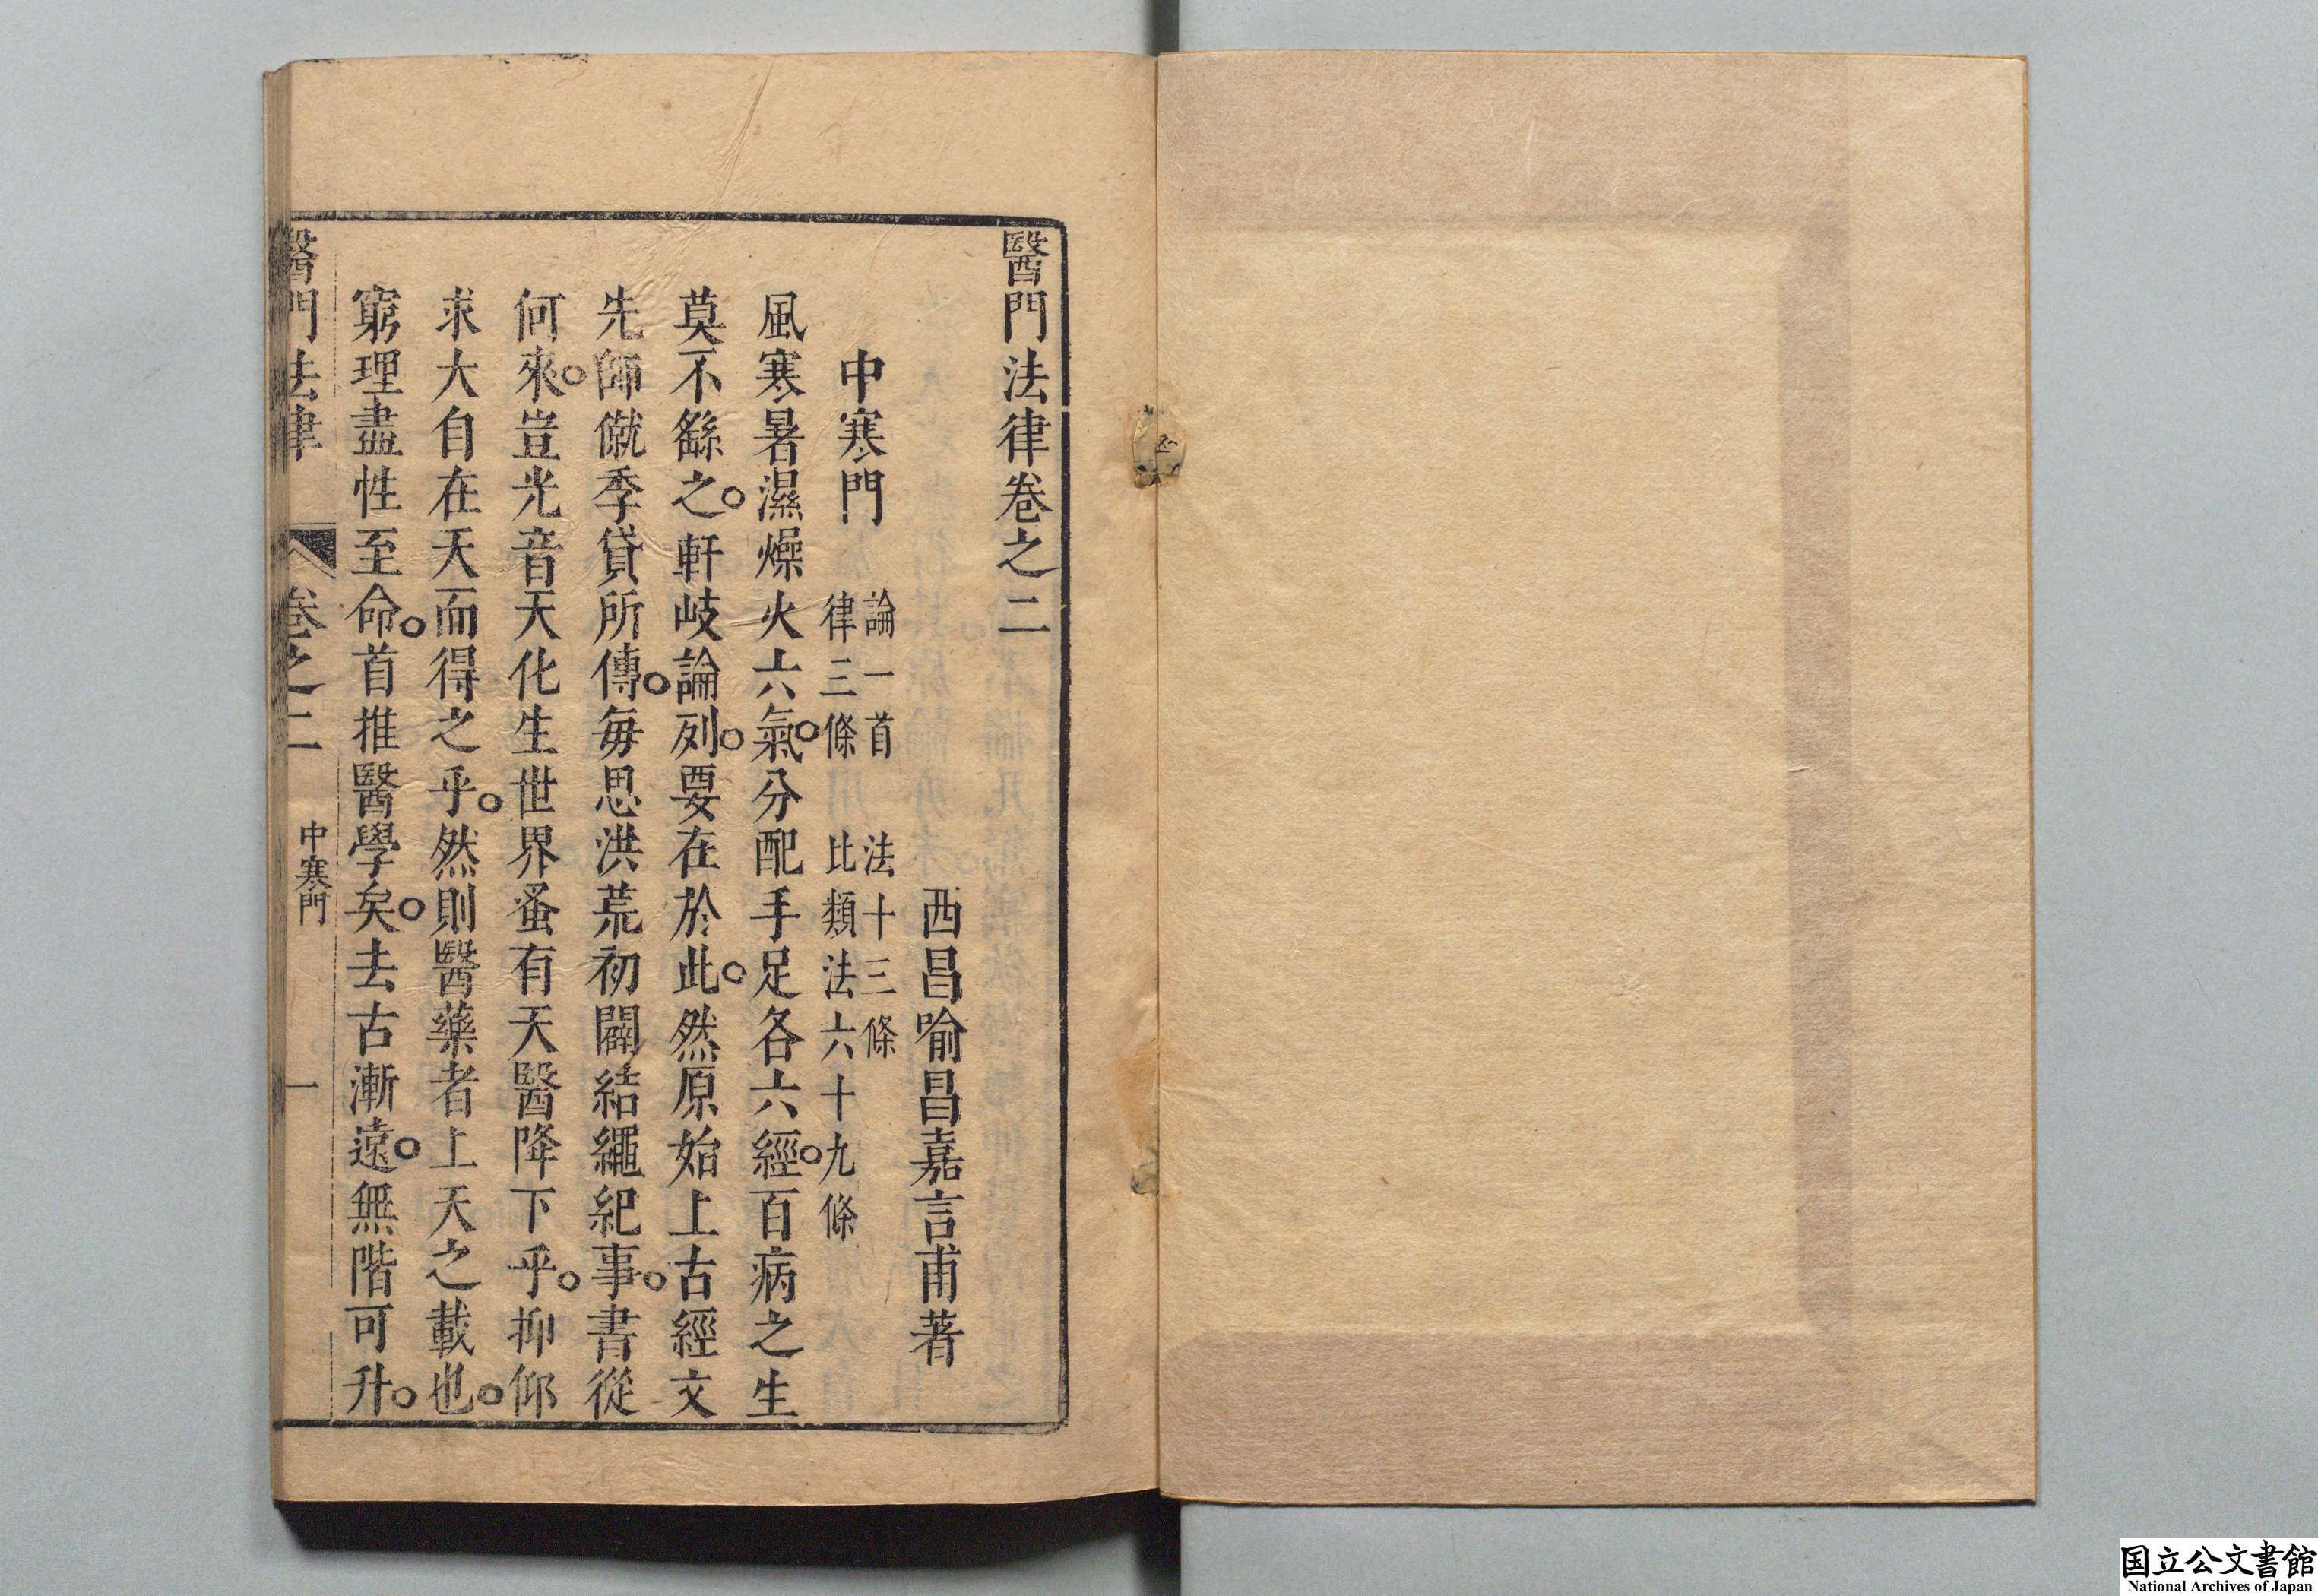 醫門法律卷之二
西昌喻昌嘉言甫著
中寒門
論一首　法十三條
律三條　比類法六十九條
風寒暑濕燥火六氣。分配手足各六經。百病之生
莫不繇之。軒岐論列。要在於此。然原始上古經文
先師僦季貸所傳。每思洪荒初闢結繩紀事。書從
何來。豈光音天化生世界蚤有天醫降下乎。抑仰
求大自在天而得之乎。然則醫藥者上天之載也。
窮理盡性至命。首推醫學矣。去古漸遠。無階可升。
醫門法律　卷之二　中寒門　一
国立公文書館
National Archives of Japan